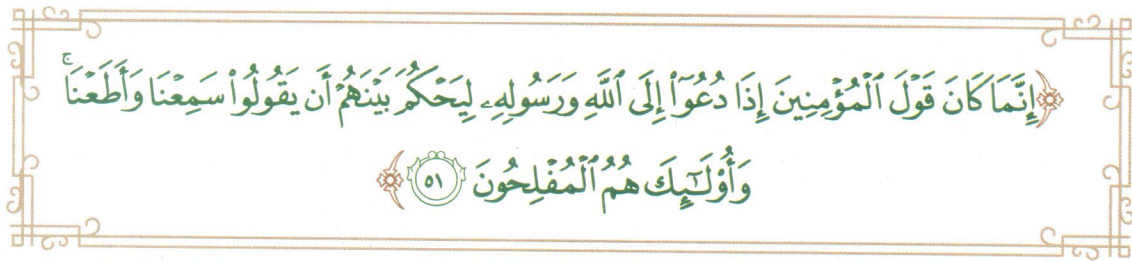 ﴿إِنَّمَا كَانَ قَوْلَ ٱلْمُؤْمِنِينَ إِذَا دُعُوٓا۟ إِلَى ٱللَّهِ وَرَسُولِهِۦ لِيَحْكُمَ بَيْنَهُمْ أَن يَقُولُوا۟ سَمِعْنَا وَأَطَعْنَا ۚ
وَأُو۟لَـٰٓئِكَ هُمُ ٱلْمُفْلِحُونَ ٥١﴾